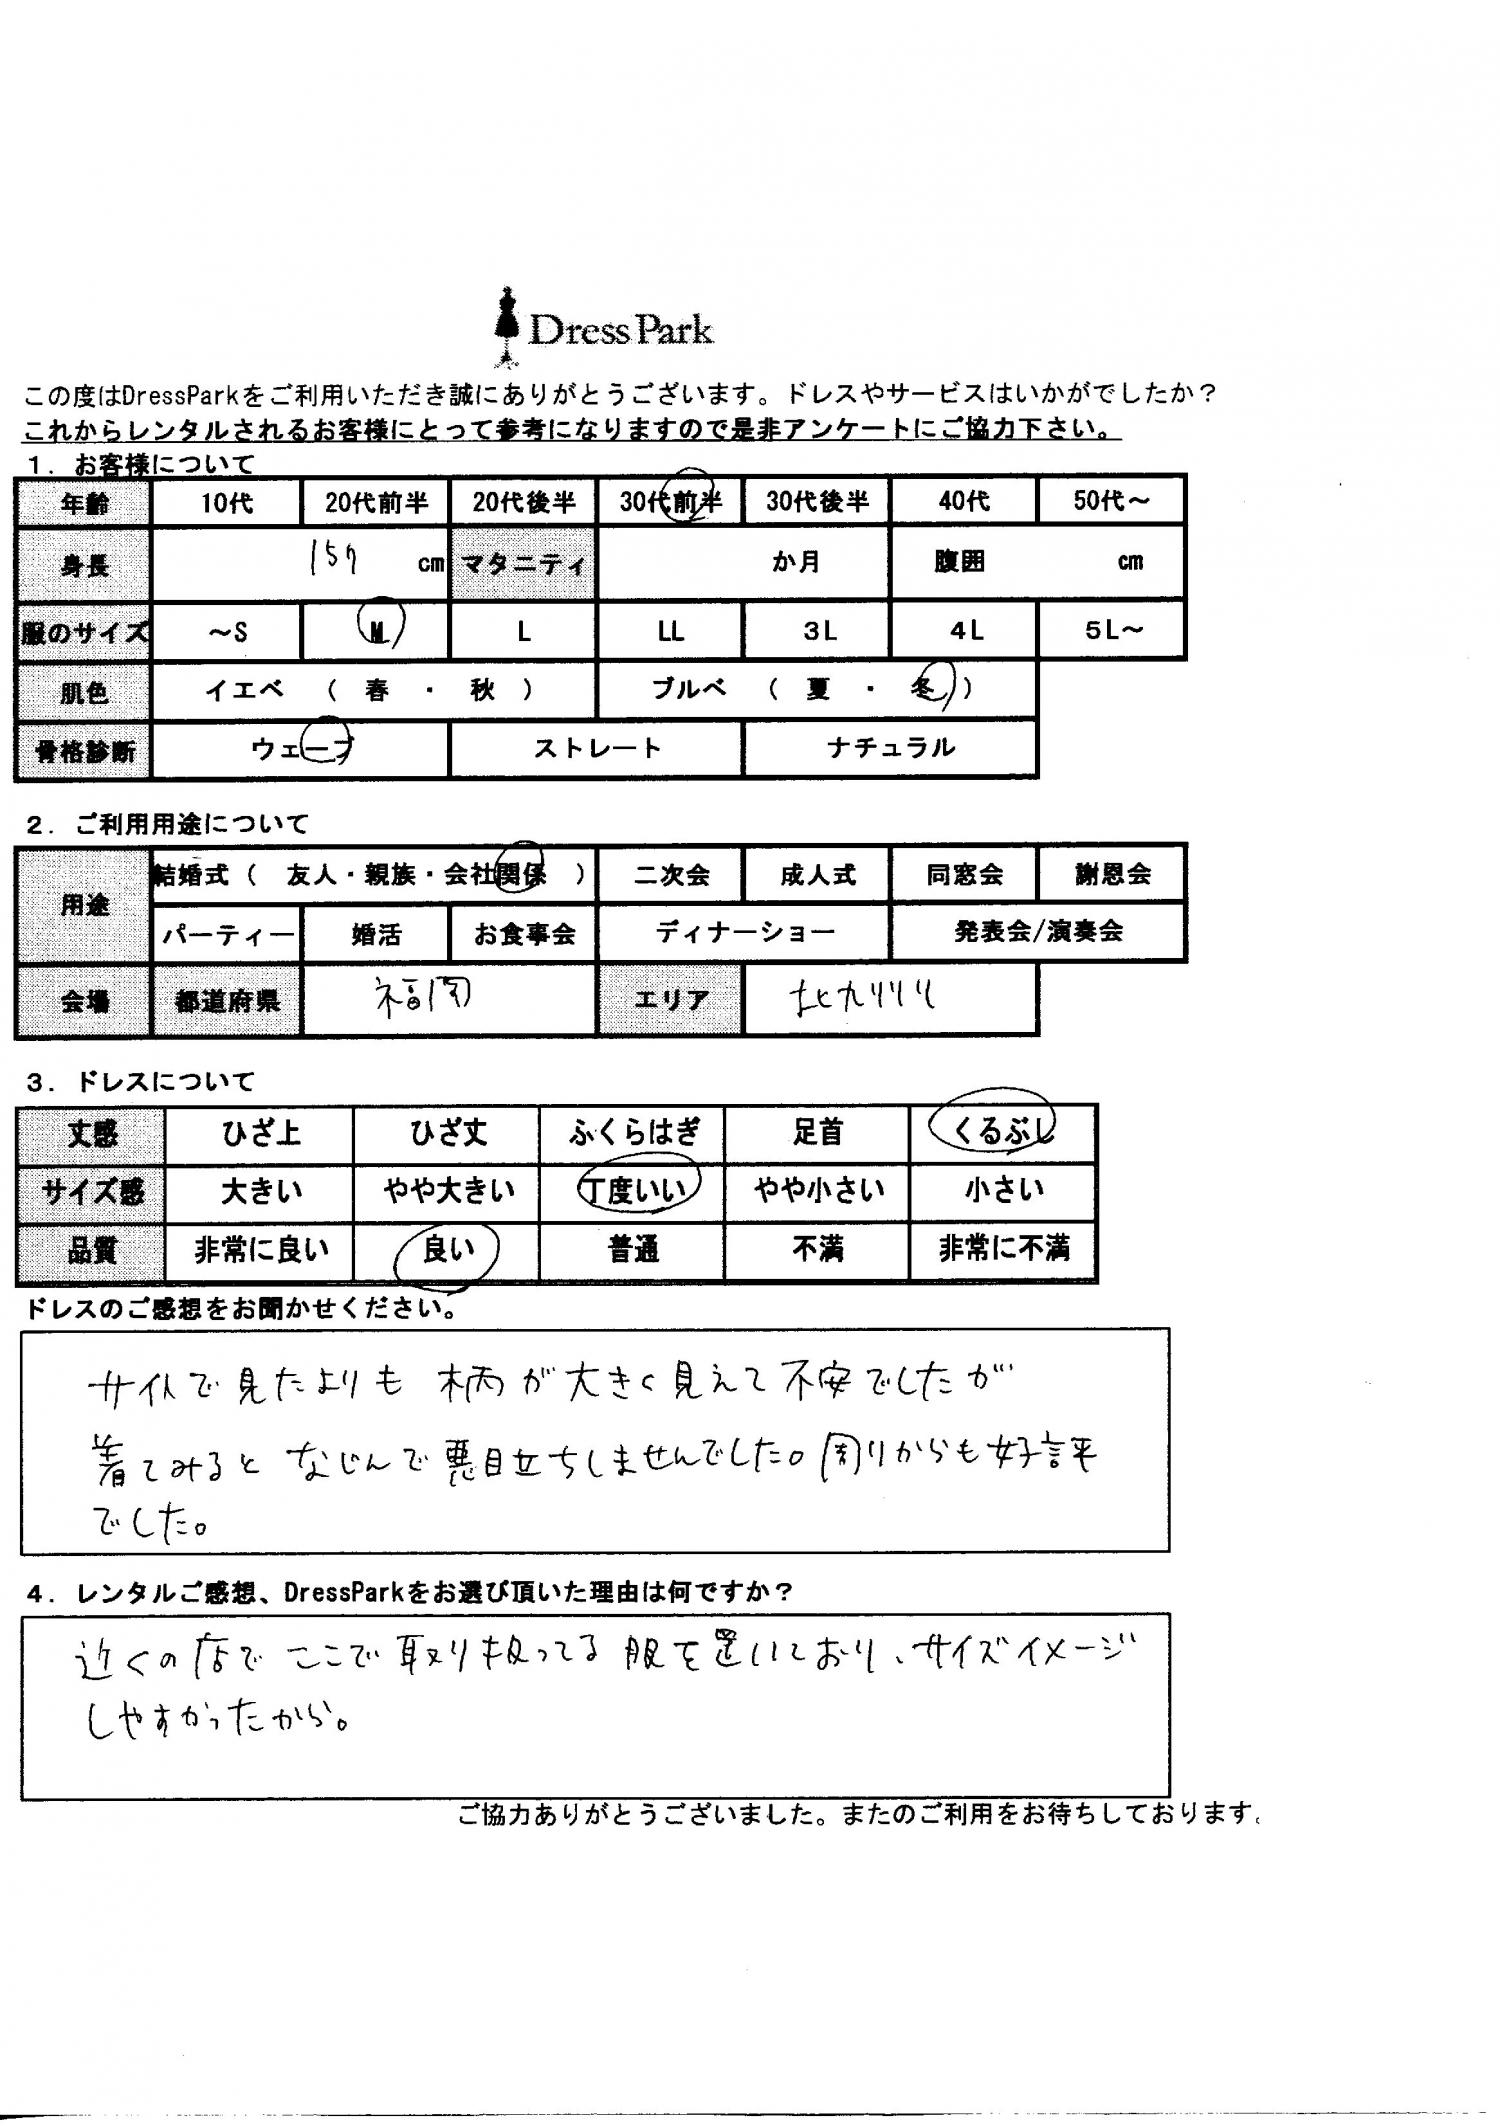 Dress Park
この度はDressParkをご利用いただき誠にありがとうございます。ドレスやサービスはいかがでしたか？
これからレンタルされるお客様にとって参考になりますので是非アンケートにご協力下さい。
1. お客様について
年齢 10代 20代前半 20代後半 30代前半 30代後半 40代 50代～
身長 157 cm マタニティ か月 腹囲 cm
服のサイズ ～S M L LL 3L 4L 5L～
肌色 イエベ （ 春 ・ 秋 ） ブルベ （ 夏 ・ 冬 ）
骨格診断 ウェーブ ストレート ナチュラル
2. ご利用用途について
用途 結婚式（ 友人・親族・会社関係 ） 二次会 成人式 同窓会 謝恩会
パーティー 婚活 お食事会 ディナーショー 発表会/演奏会
会場 都道府県 福岡 エリア 北九州
3. ドレスについて
丈感 ひざ上 ひざ丈 ふくらはぎ 足首 くるぶし
サイズ感 大きい やや大きい 丁度いい やや小さい 小さい
品質 非常に良い 良い 普通 不満 非常に不満
ドレスのご感想をお聞かせください。
サイトで見たよりも 柄が大きく見えて不安でしたが
着てみると なじんで悪目立ちしませんでした。周りからも好評
でした。
4. レンタルご感想、DressParkをお選び頂いた理由は何ですか？
近くの店で ここで取り扱ってる服を置いており、サイズイメージ
しやすかったから。
ご協力ありがとうございました。またのご利用をお待ちしております。